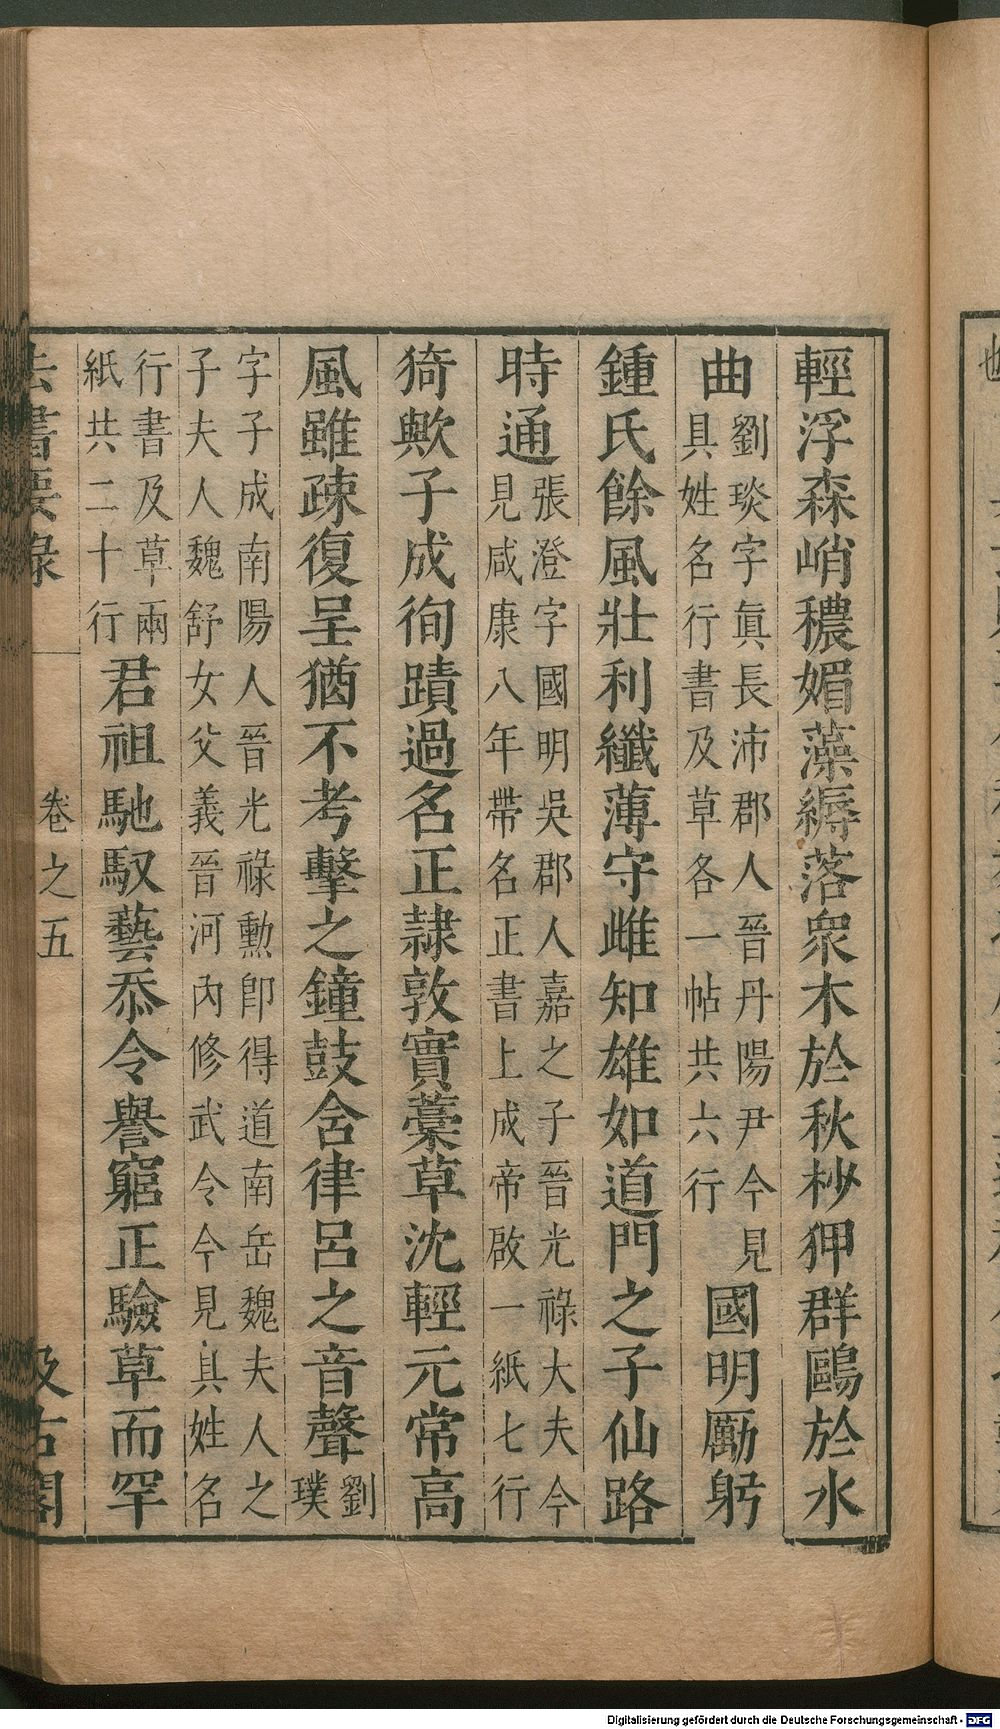 輕浮森峭穠媚藻縟落衆木於秋杪狎群鷗於水
曲劉琰字眞長沛郡人晉丹陽尹今見具姓名行書及草各一帖共六行國明厲躬
鍾氏餘風壯利纖薄守雌知雄如道門之子仙路
時通張澄字國明吳郡人嘉之子晉光祿大夫今見咸康八年帶名正書上成帝啟一紙七行
猗歟子成徇蹟過名正隷敦實藁草沈輕元常高
風雖疎復呈猶不考擊之鐘鼓舍律呂之音聲劉璞
字子成南陽人晉光祿勳卽得道南岳魏夫人之子夫人魏舒女父義晉河內修武令今見具姓名
行書及草兩紙共二十行君祖馳馭藝忝令譽窮正驗草而罕
法書要錄 卷之五 汲古閣
Digitalisierung gefördert durch die Deutsche Forschungsgemeinschaft - DFG